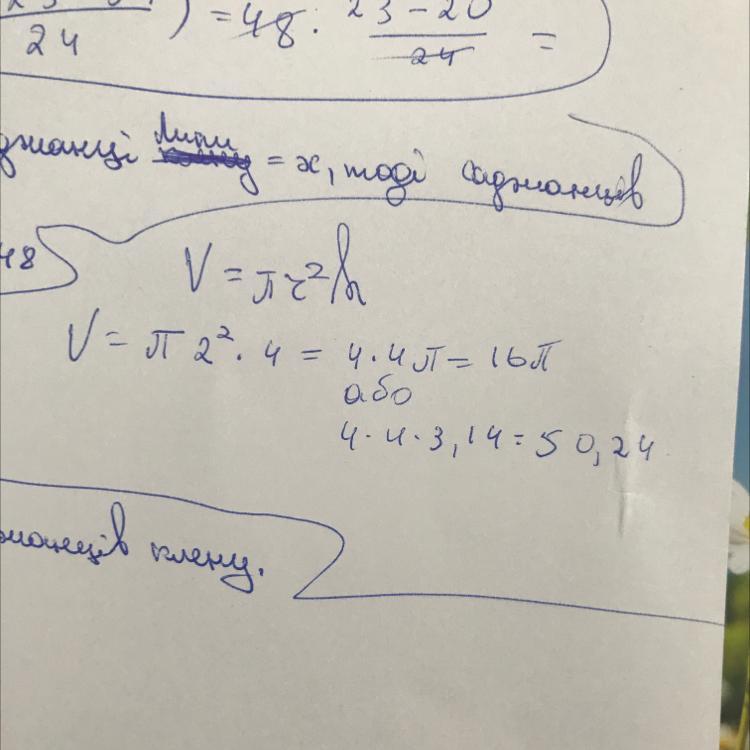 24 ) = 48 · 23 - 20 / 24 =
липи = x, тоді саджанців
48
V = πr²h
V = π 2² · 4 = 4 · 4π = 16π
або
4 · 4 · 3,14 = 50,24
клену.